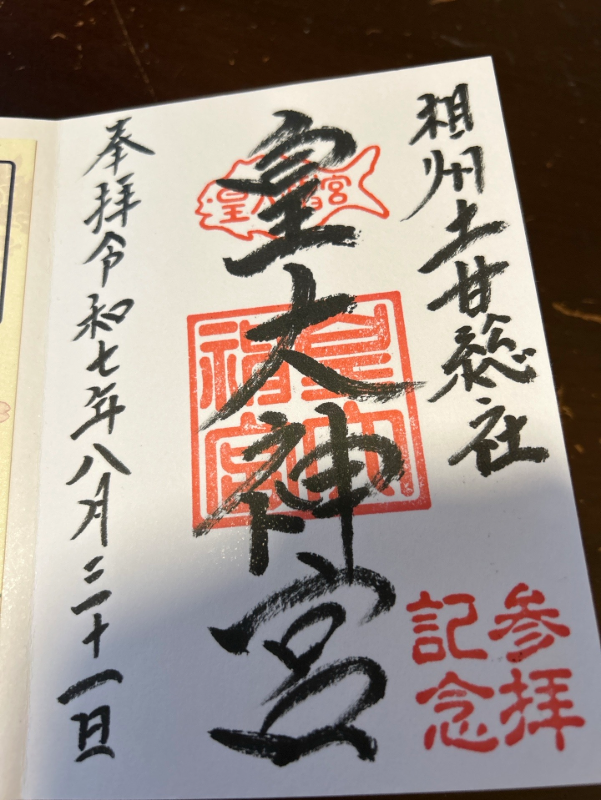 相州土甘総社
皇大神宮
皇大神宮
参拝
記念
奉拝令和七年八月三十一日